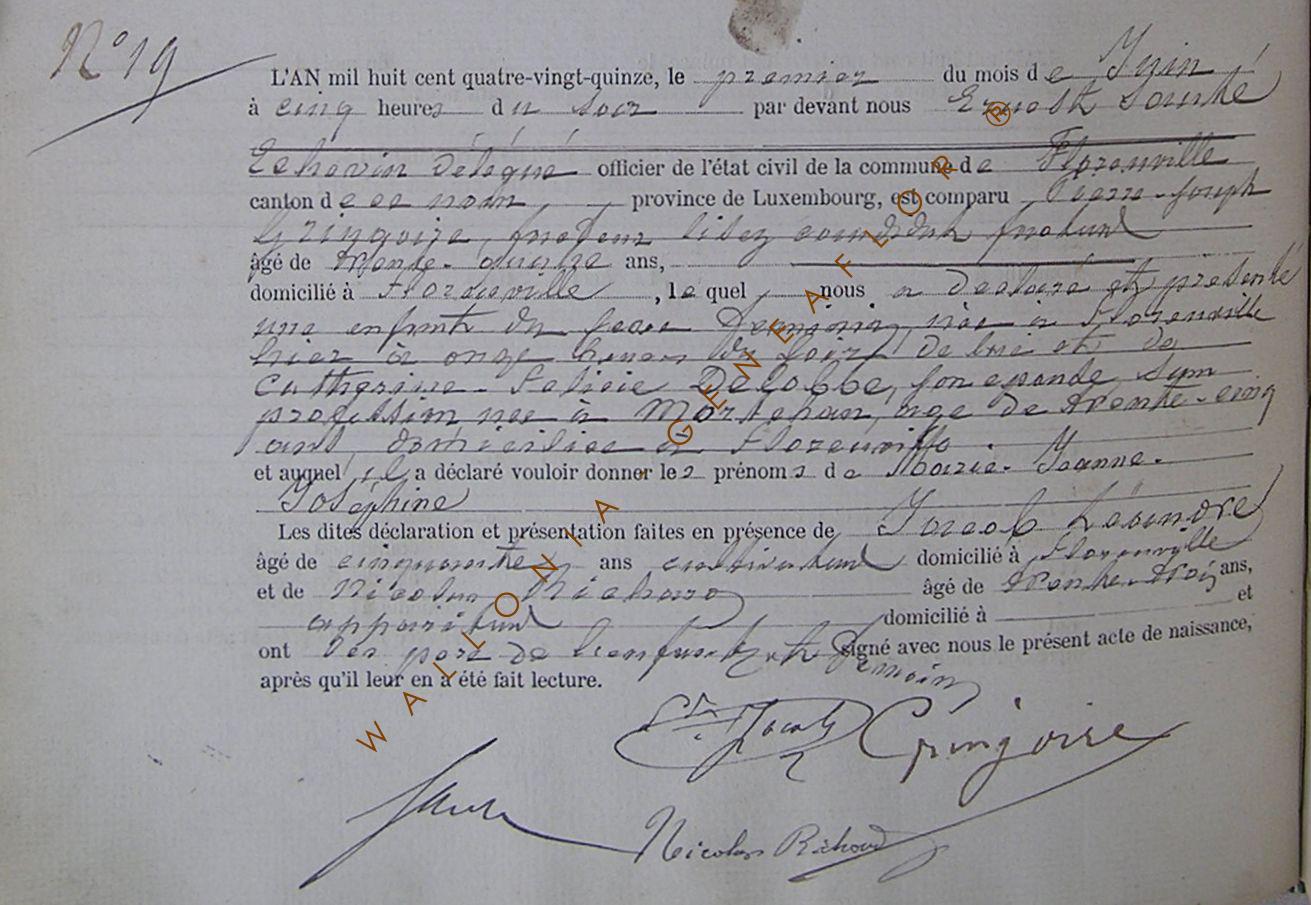 N° 19
L'AN mil huit cent quatre-vingt-quinze, le premier du mois de Juin
à cinq heures du soir par devant nous Ernest
Echevin délégué officier de l'état civil de la commune de Florenville
canton de ce nom, province de Luxembourg, est comparu Pierre-Joseph
Gringoire, facteur
âgé de trente-quatre ans,
domicilié à Florenville, lequel nous a déclaré et présenté
une enfant du sexe féminin, née à Florenville
hier à onze heures du soir, de lui et de
Catherine-Félicie Delobbe, son épouse, sans
profession née à Mortehan, âgée de trente-cinq
ans, domiciliée à Florenville.
et auquel il a déclaré vouloir donner les prénoms de Marie-Jeanne-
Joséphine
Les dites déclaration et présentation faites en présence de Jacob Léandre
âgé de cinquante ans cultivateur domicilié à Florenville
et de Nicolas Richard âgé de trente-trois ans,
appariteur domicilié à et
ont les père de l'enfant et témoins signé avec nous le présent acte de naissance,
après qu'il leur en a été fait lecture.
Jacob Gringoire
Nicolas Richard
WALLONIA.GENEAFLOR®